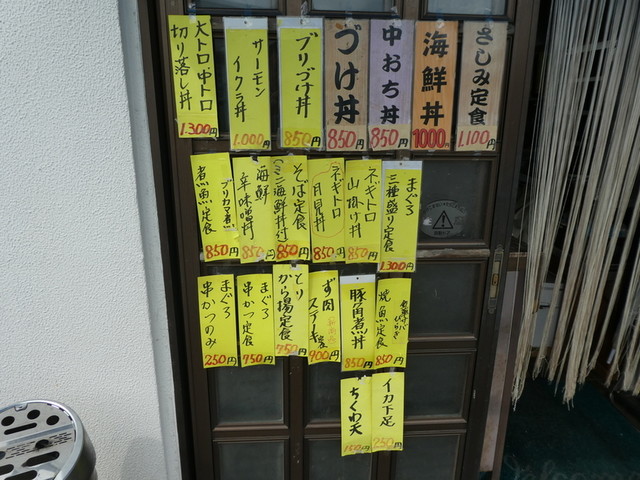 さしみ定食
1,100円
海鮮丼
1000円
中おち丼
850円
づけ丼
850円
ブリづけ丼
850円
サーモン
イクラ丼
1,000円
大トロ・中トロ
切り落し丼
1,300円
まぐろ
三種盛り定食
1,300円
ネギトロ
山掛け丼
850円
ネギトロ
月見丼
850円
そば定食
(ミニ海鮮丼付)
850円
海鮮
辛味噌丼
850円
ブリカマ煮
煮魚定食
850円
焼魚定食
850円
豚角煮丼
850円
ステーキ
900円
とり
から揚定食
750円
まぐろ
串かつ定食
950円
まぐろ
串かつのみ
250円
イカ下足
250円
ちくわ天
150円